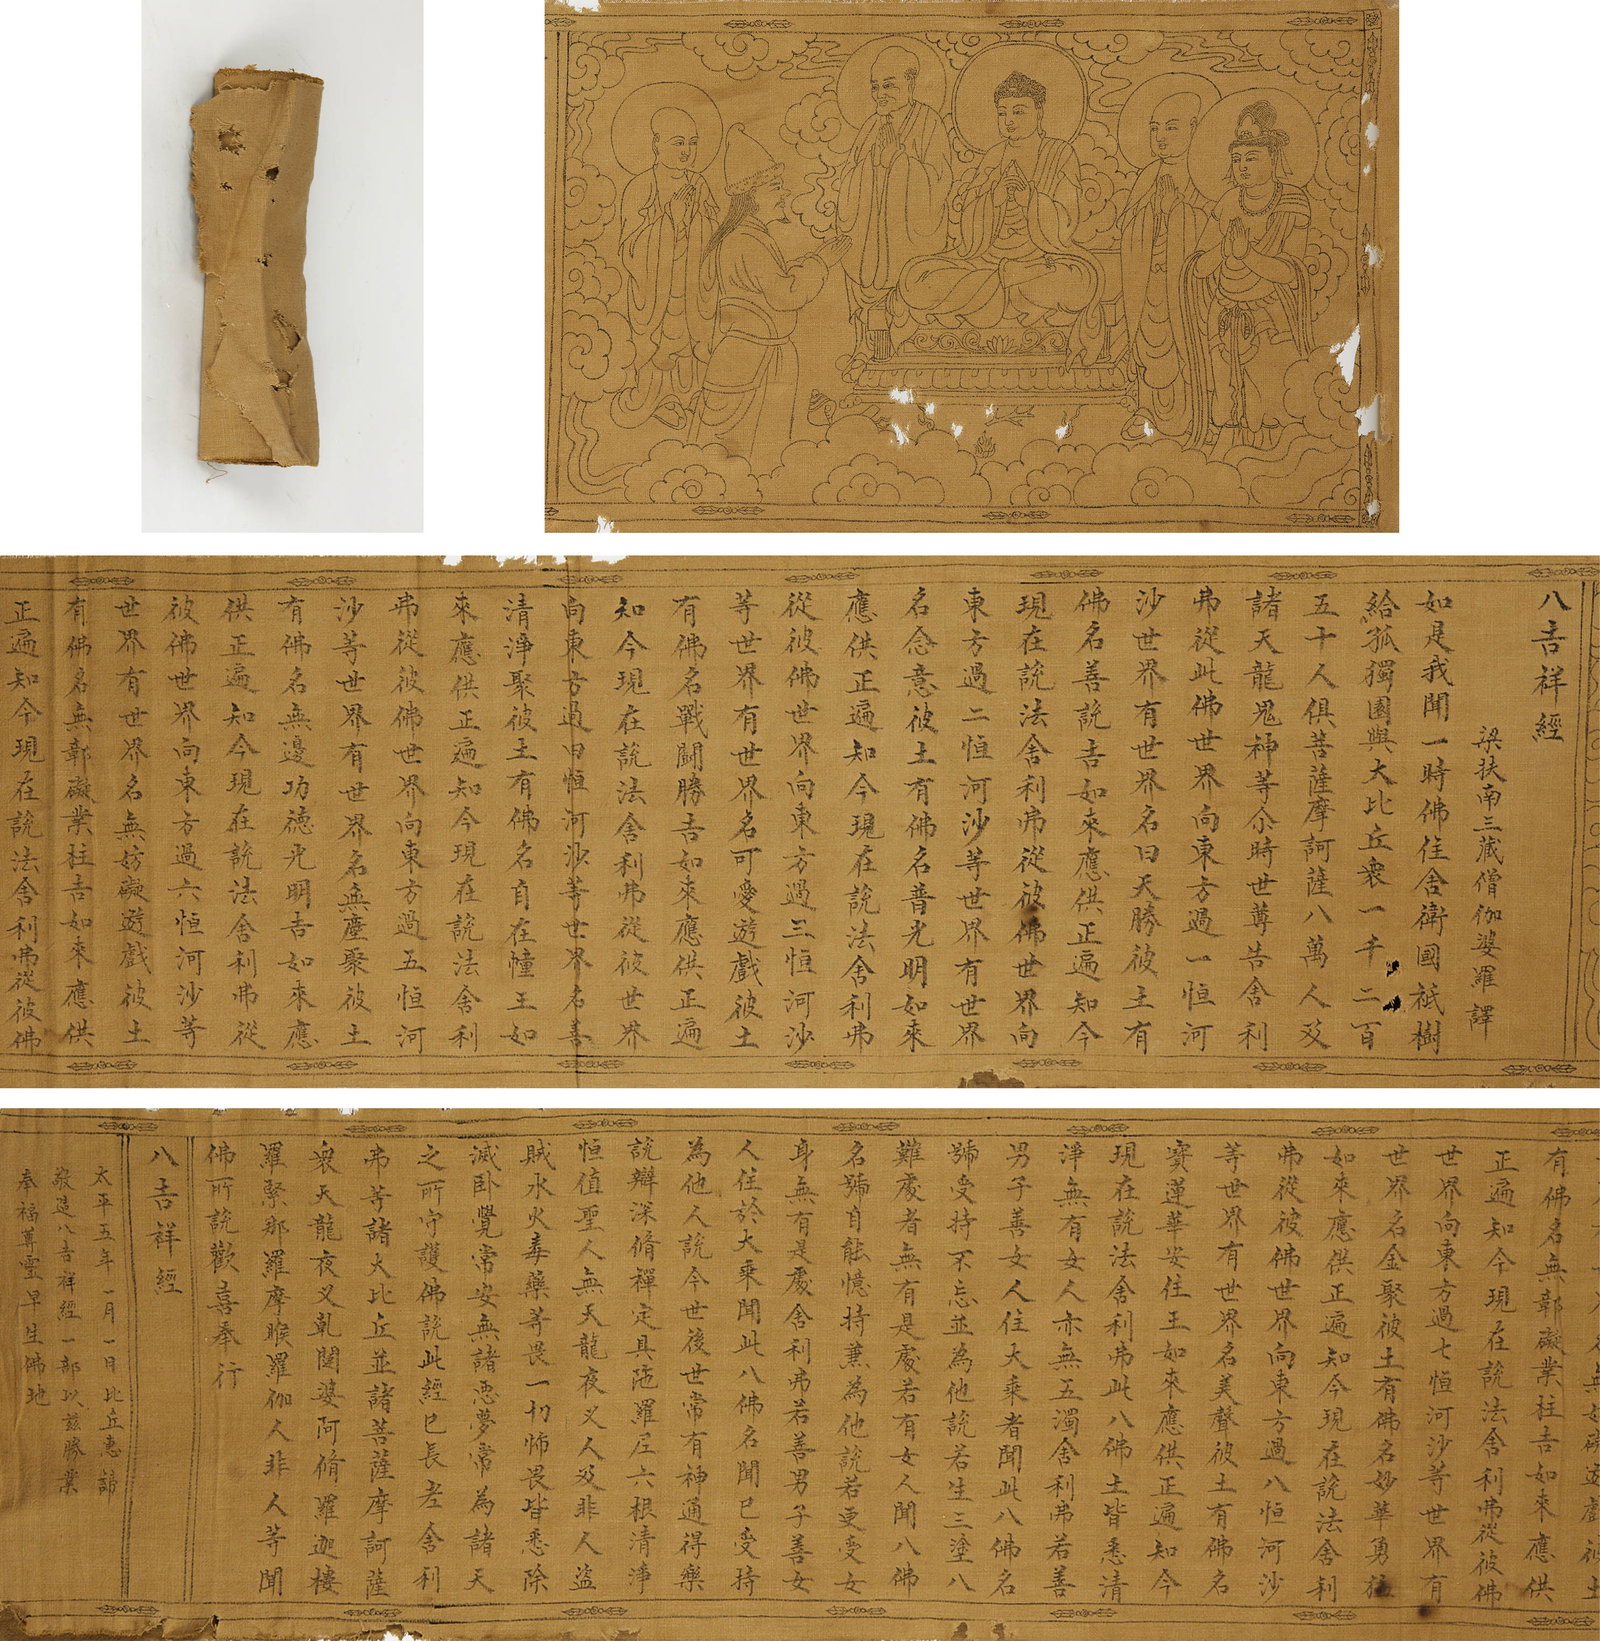 八吉祥經
梁扶南三藏僧伽婆羅譯
如是我聞一時佛住舍衛國祇樹
給孤獨園與大比丘眾一千二百
五十人俱菩薩摩訶薩八萬人及
諸天龍鬼神等尒時世尊告舍利
弗從此佛世界向東方過一恒河
沙世界有世界名曰天勝彼土有
佛名善說吉如來應供正遍知今
現在說法舍利弗從彼佛世界向
東方過二恒河沙等世界有世界
名念意彼土有佛名普光明如來
應供正遍知今現在說法舍利弗
從彼佛世界向東方過三恒河沙
等世界有世界名可愛遊戲彼土
有佛名戰鬪勝吉如來應供正遍
知今現在說法舍利弗從彼世界
向東方過四恒河沙等世界名善
清淨聚彼土有佛名自在幢王如
來應供正遍知今現在說法舍利
弗從彼佛世界向東方過五恒河
沙等世界有世界名無塵聚彼土
有佛名無邊功德光明吉如來應
供正遍知今現在說法舍利弗從
彼佛世界向東方過六恒河沙等
世界有世界名無妨礙遊戲彼土
有佛名無鄣礙業柱吉如來應供
正遍知今現在說法舍利弗從彼佛
有佛名無鄣礙業柱吉如來應供
正遍知今現在說法舍利弗從彼佛
世界向東方過七恒河沙等世界有
世界名金聚彼土有佛名妙華勇猛
如來應供正遍知今現在說法舍利
弗從彼佛世界向東方過八恒河沙
等世界有世界名美聲彼土有佛名
寶蓮華安住王如來應供正遍知今
現在說法舍利弗此八佛土皆悉清
淨無有女人亦無五濁舍利弗若善
男子善女人住大乘者聞此八佛名
號受持不忘並為他說若生三塗八
難處者無有是處若有女人聞八佛
名號自能憶持兼為他說若更受女
身無有是處舍利弗若善男子善女
人住於大乘聞此八佛名聞已受持
為他人說今世後世常有神通得樂
說辯深脩禪定具陁羅尼六根清淨
恒值聖人無天龍夜叉人及非人盜
賊水火毒藥等畏一切怖畏皆悉除
滅臥覺常安無諸惡夢常為諸天
之所守護佛說此經已長老舍利
弗等諸大比丘並諸菩薩摩訶薩
眾天龍夜叉乹闥婆阿脩羅迦樓
羅緊那羅摩睺羅伽人非人等聞
佛所說歡喜奉行
八吉祥經
太平五年一月一日比丘惠諦
敬造八吉祥經一部以茲勝業
奉福尊靈早生佛地